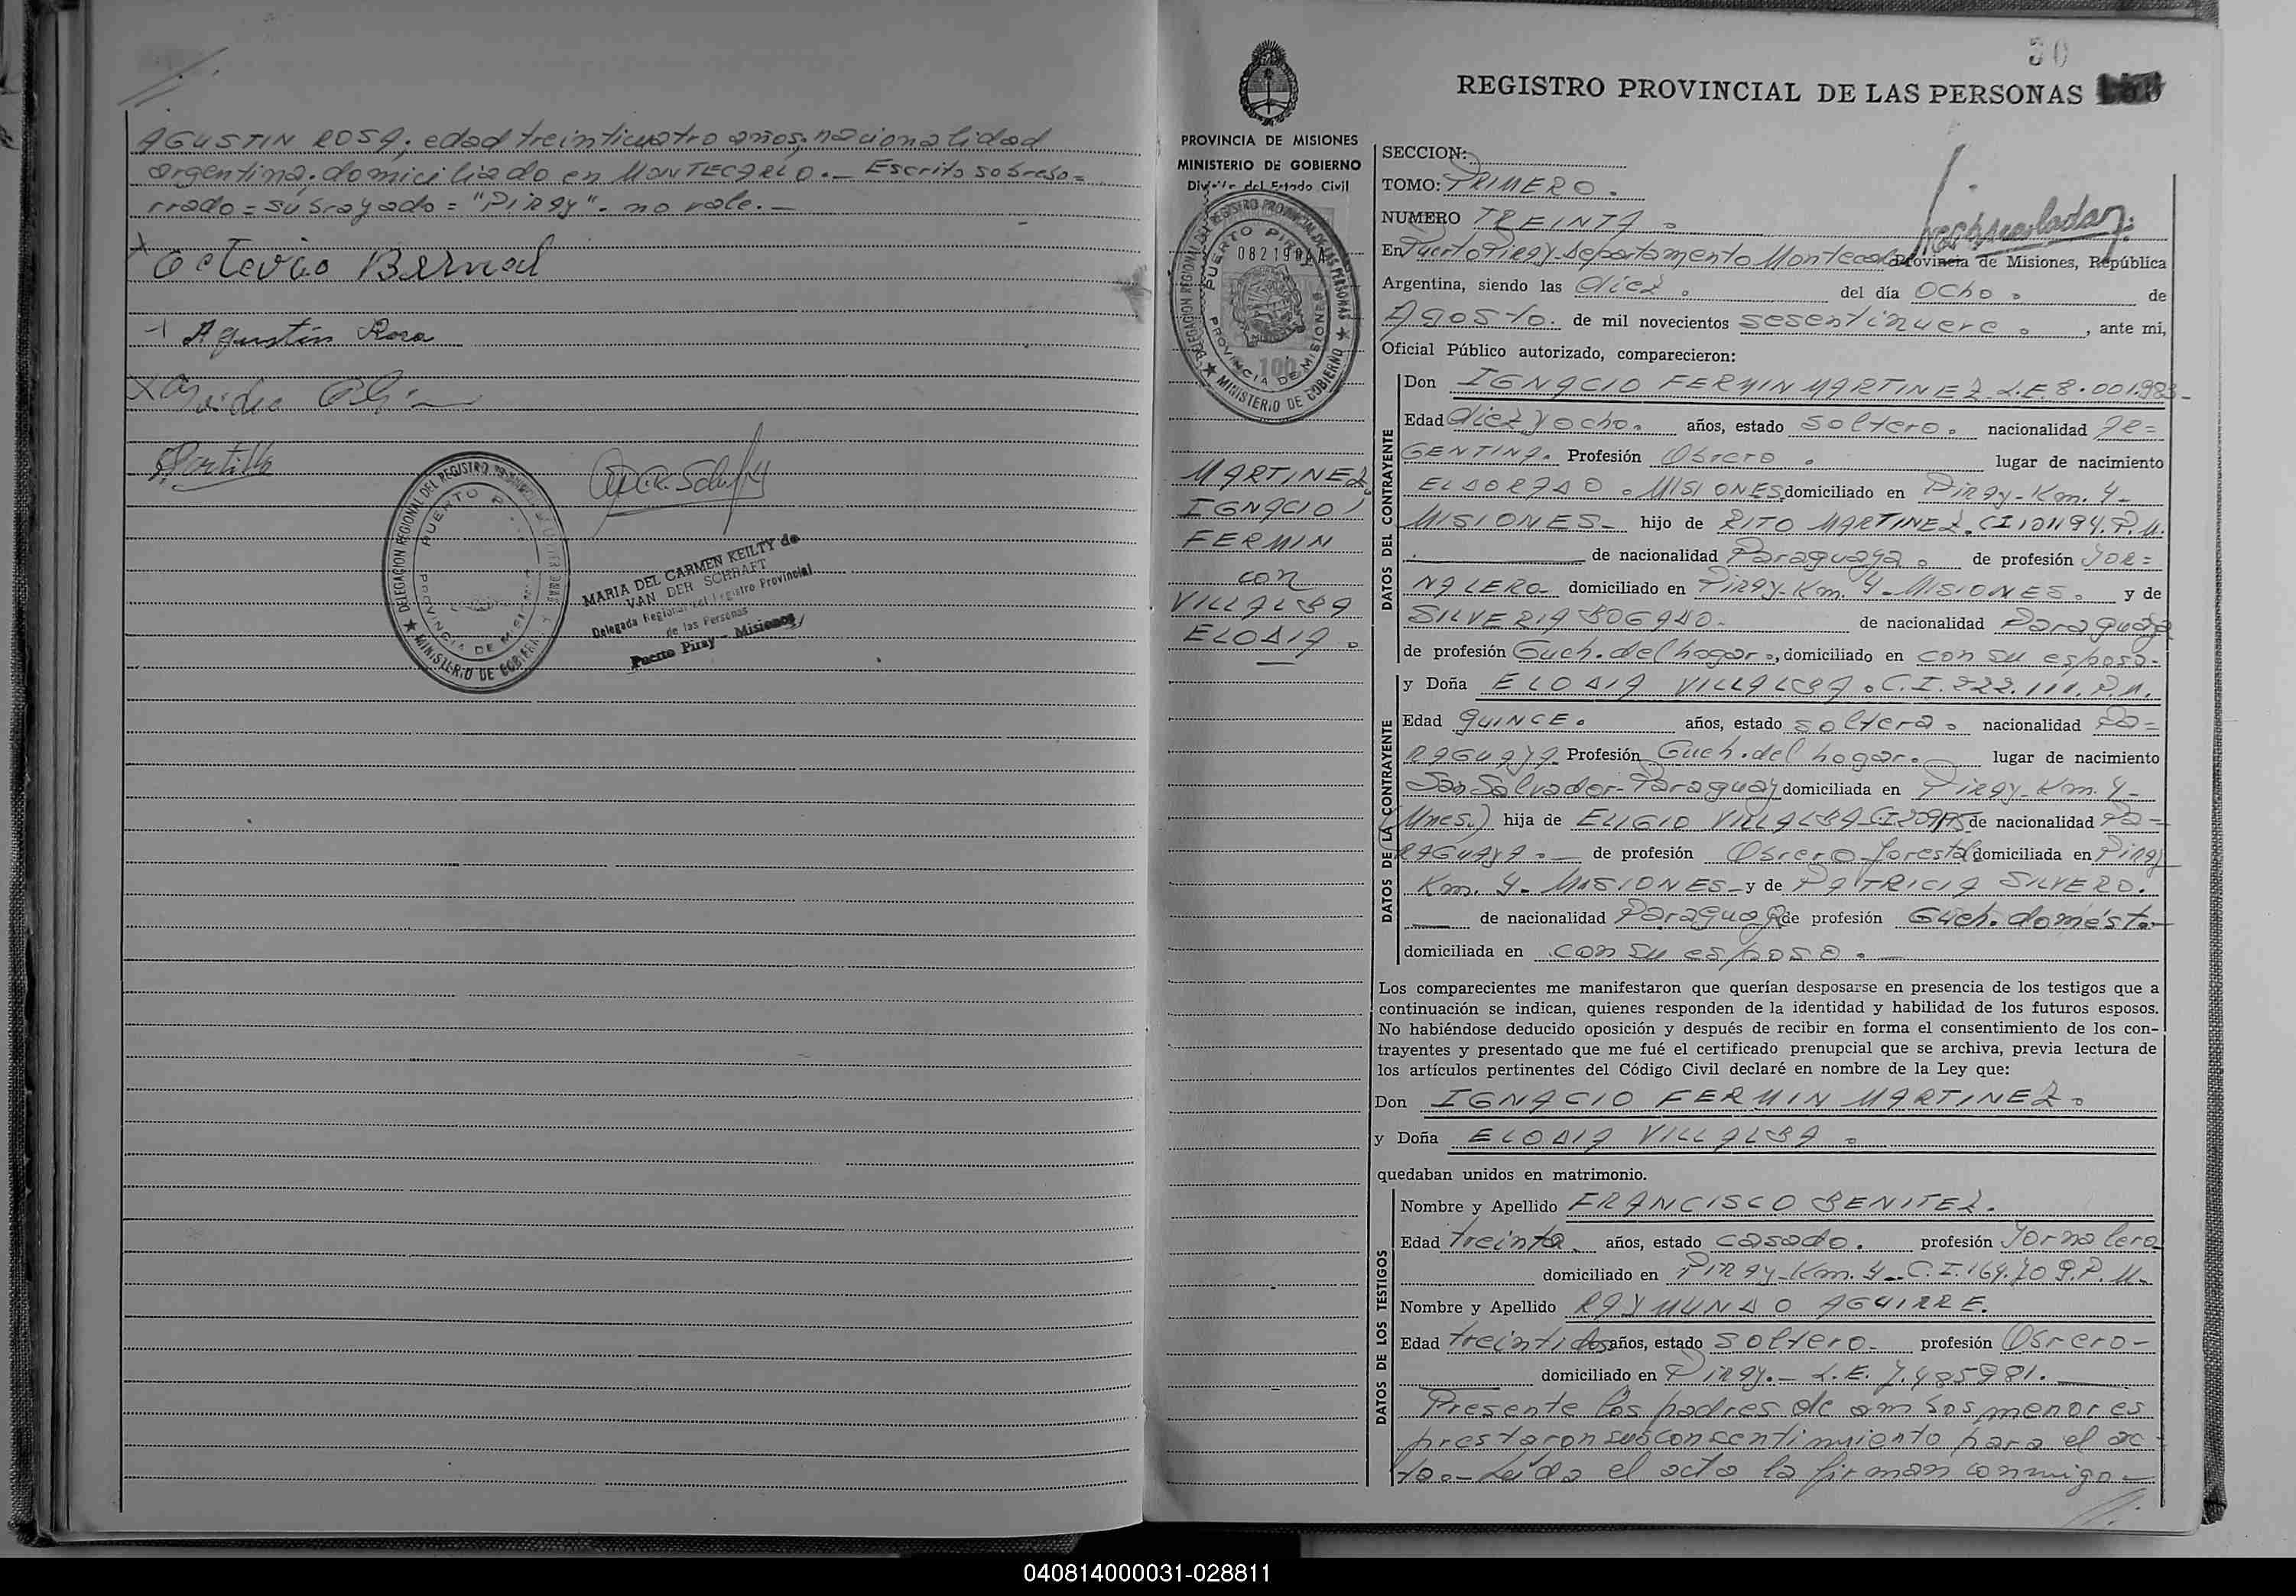 AGUSTIN ROSA; edad treinticuatro años; nacionalidad
argentina; domiciliado en MONTECARLO.- Escrito sobreso=
rrado = subrayado = "Piray". no vale.-
Octavio Bernal
Agustín Rosa
DELEGACION REGIONAL DEL REGISTRO
PUERTO
PROVINCIA DE MISI
MINISTERIO DE GOBIERN
MARIA DEL CARMEN KEILTY de
VAN DER SCHRAFT
Delegada Regional del Registro Provincial
de las Personas
Puerto Piray - Misiones
50
REGISTRO PROVINCIAL DE LAS PERSONAS
PROVINCIA DE MISIONES
MINISTERIO DE GOBIERNO
División del Estado Civil
DELEGACION REGIONAL DEL REGISTRO PROVINCIAL DE LAS PERSONAS
PUERTO PIRAY
PROVINCIA DE MISIONES
MINISTERIO DE GOBIERNO
100
MARTINEZ
IGNACIO
FERMIN
con
VILLALBA
ELODIA.
SECCION:
TOMO: PRIMERO.
NUMERO TREINTA.
En Puerto Piray Departamento Montecarlo Provincia de Misiones, República
Argentina, siendo las diez. del día ocho. de
Agosto. de mil novecientos sesentinueve. , ante mi,
Oficial Público autorizado, comparecieron:
DATOS DEL CONTRAYENTE
Don IGNACIO FERMIN MARTINEZ. L.E. 8.001.983-
Edad diez y ocho. años, estado soltero. nacionalidad AR=
GENTINA. Profesión Obrero. lugar de nacimiento
ELDORADO. MISIONES domiciliado en Piray-Km. 4-
MISIONES- hijo de RITO MARTINEZ. C.I 101194. P.M.
de nacionalidad Paraguaya. de profesión JOR=
NALERO- domiciliado en Piray-Km. 4- MISIONES. y de
SILVERIA BOGADO. de nacionalidad Paraguaya
de profesión Queh. del hogar., domiciliado en con su esposo-
DATOS DE LA CONTRAYENTE
y Doña ELODIA VILLALBA. C.I. 222.111. P.M.
Edad QUINCE. años, estado soltera. nacionalidad Pa=
RAGUAYA Profesión Queh. del hogar. lugar de nacimiento
San Salvador-Paraguay domiciliada en Piray-Km. 4-
(Mnes.) hija de ELIGIO VILLALBA de nacionalidad Pa-
RAGUAYA.- de profesión Obrero forestal domiciliada en Piray
Km. 4- MISIONES- y de PATRICIA SILVERO.
de nacionalidad Paraguaya de profesión Queh. domést.-
domiciliada en con su esposo.-
Los comparecientes me manifestaron que querían desposarse en presencia de los testigos que a
continuación se indican, quienes responden de la identidad y habilidad de los futuros esposos.
No habiéndose deducido oposición y después de recibir en forma el consentimiento de los con-
trayentes y presentado que me fué el certificado prenupcial que se archiva, previa lectura de
los artículos pertinentes del Código Civil declaré en nombre de la Ley que:
Don IGNACIO FERMIN MARTINEZ.
y Doña ELODIA VILLALBA.
quedaban unidos en matrimonio.
DATOS DE LOS TESTIGOS
Nombre y Apellido FRANCISCO BENITEZ.
Edad treinta. años, estado casado. profesión Jornalero
domiciliado en PIRAY-Km. 4-. C.I. 164.709. P. M-
Nombre y Apellido RAYMUNDO AGUIRRE.
Edad treintidos años, estado soltero- profesión Obrero-
domiciliado en Piray.- L.E. 7.485981.
Presente los padres de ambos menores
prestaron sus consentimiento para el ac-
to.- Leída el acta la firman conmigo-
040814000031-028811